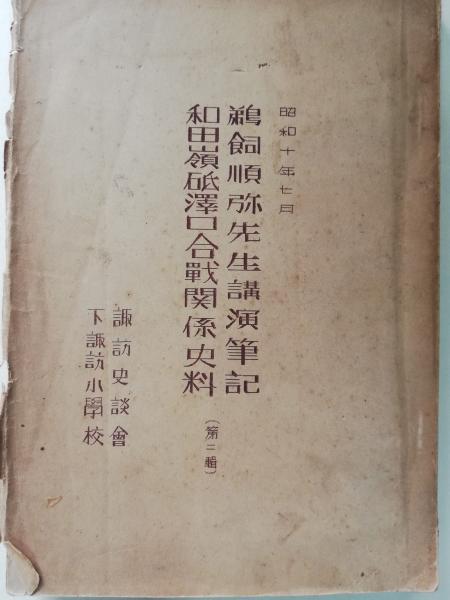 昭和十年七月
鵜飼順弥先生講演筆記
和田嶺砥澤口合戰関係史料
(第二輯)
諏訪史談會
下諏訪小學校